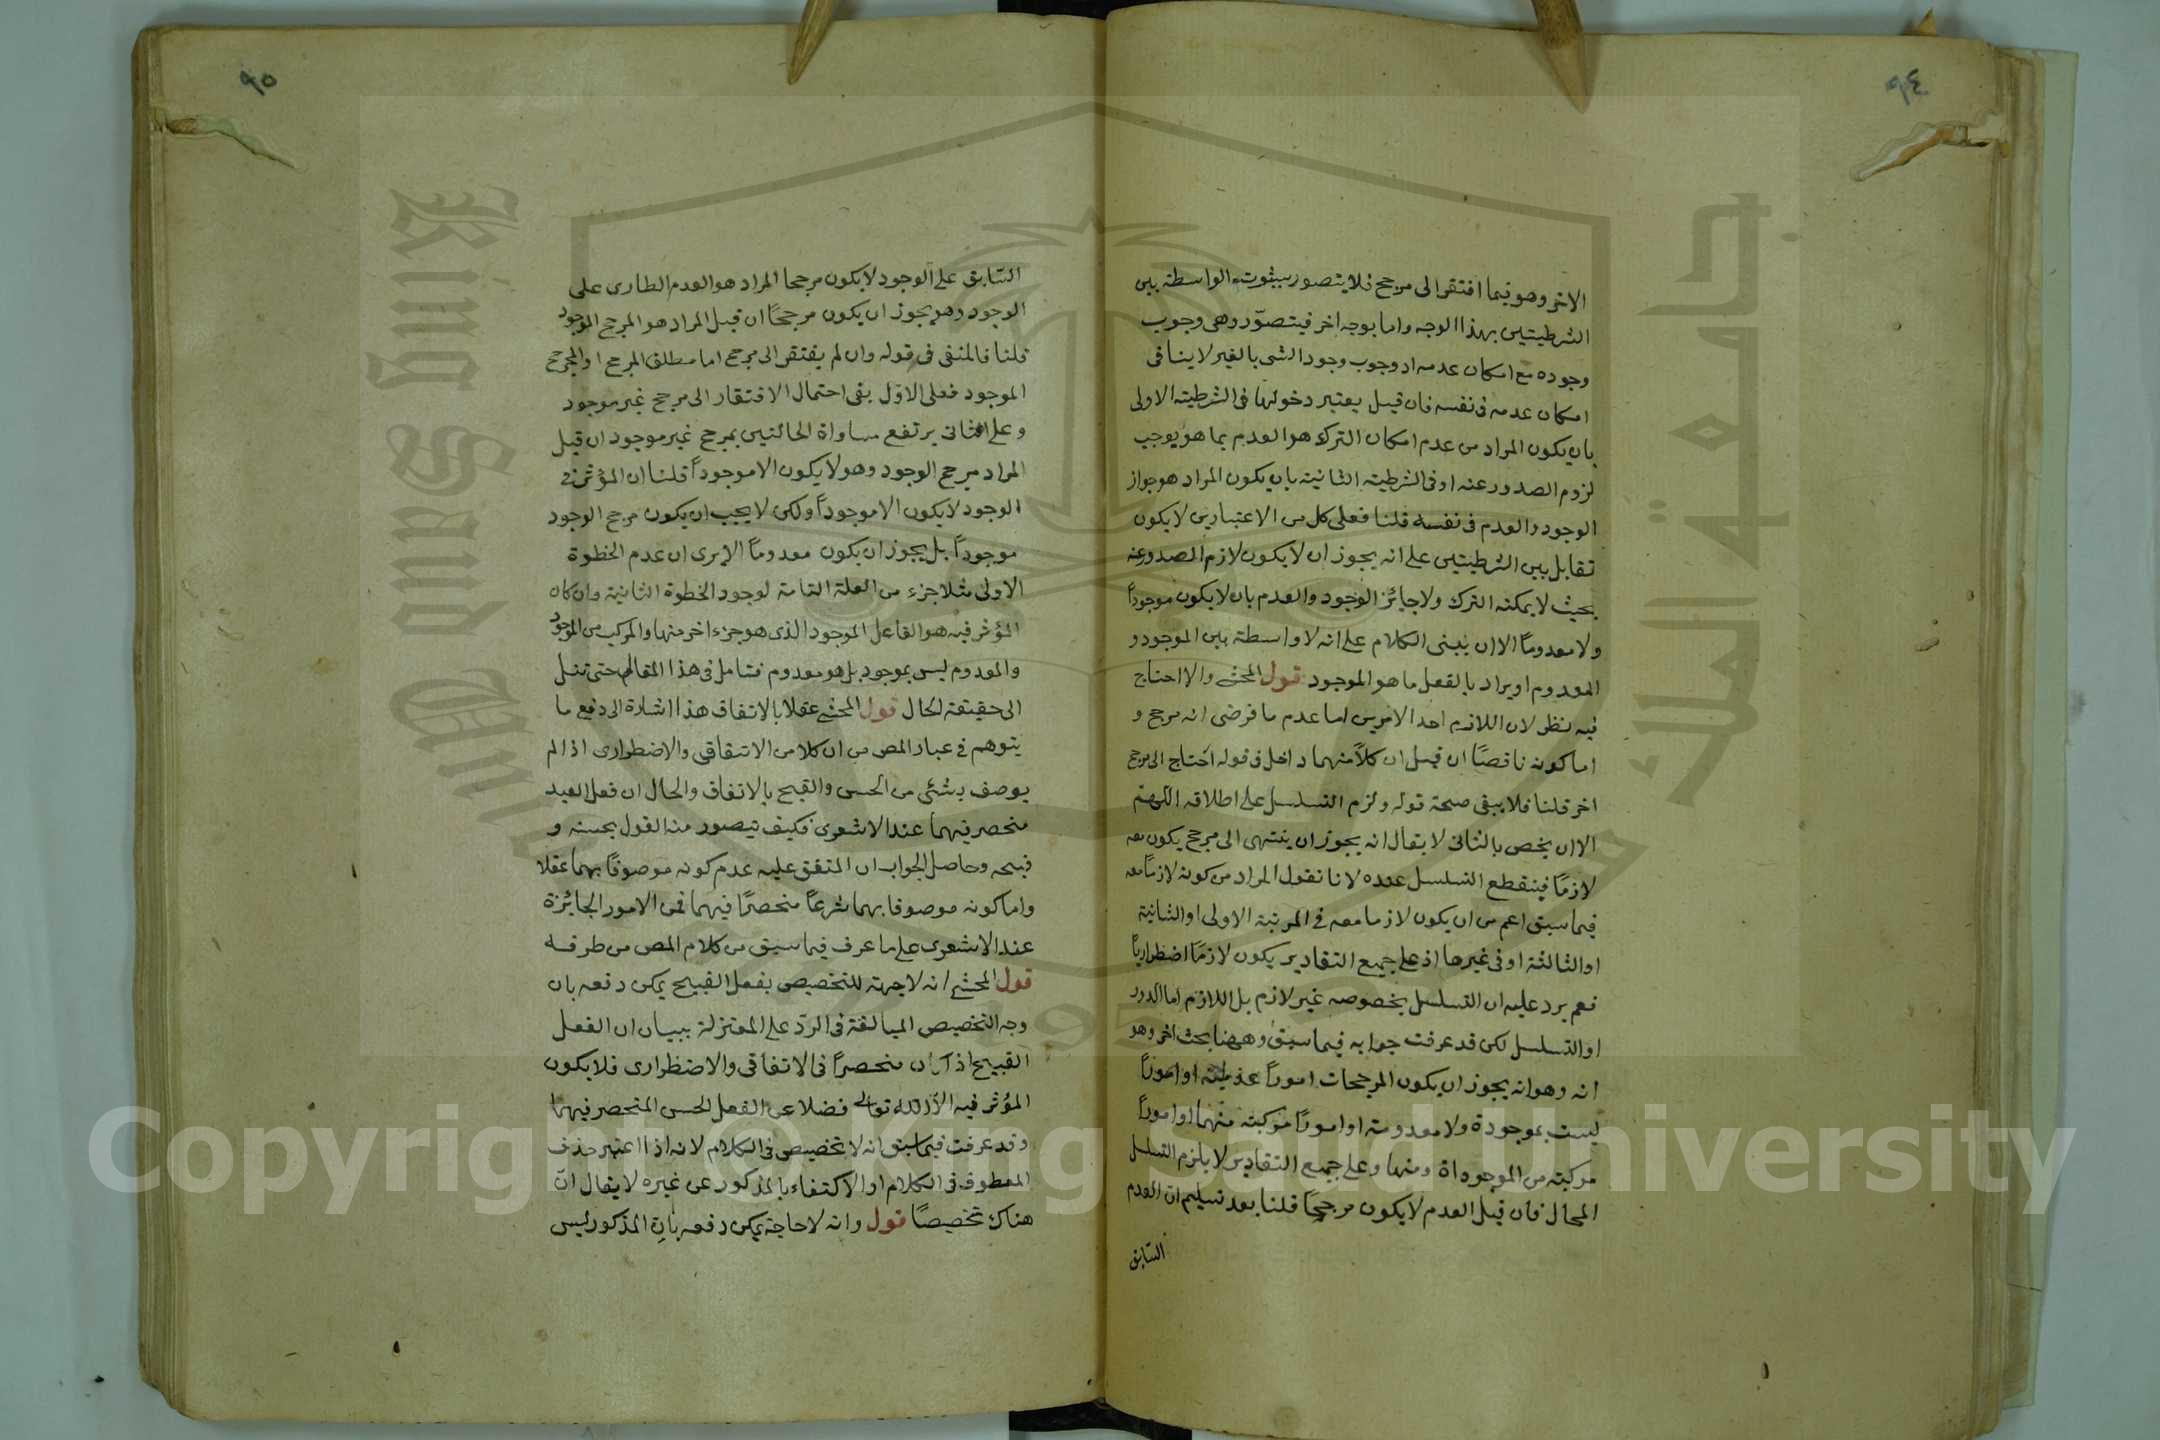 ٩٤
الاخر وهو فيما افتقر الى مرجح فلا يتصور بثبوت الواسطة بين
الشرطيتين بهذا الوجه واما بوجه اخر فيتصور وهى وجوب
وجوده مع امكان عدمه اذ وجوب وجود الشى بالغير لا ينافى
امكان عدمه فى نفسه فان قيل يعتبر دخولها فى الشرطية الاولى
بان يكون المراد من عدم امكان الترك هو العدم بما هو يوجب
لزوم الصدور عنه او فى الشرطية الثانية بان يكون المراد هو جواز
الوجود والعدم فى نفسه قلنا فعلى كل من الاعتبارين لا يكون
تقابل بين الشرطيتين على انه يجوز ان لا يكون لازم الصدور عنه
بحيث لا يمكنه الترك ولا جائز الوجود والعدم بان لا يكون موجوداً
ولا معدوماً الا ان يبنى الكلام على انه لا واسطة بين الموجود و
المعدوم او يراد بالفعل ما هو الموجود قول المحشى والا احتاج
فيه نظر لان اللازم احد الامرين اما عدم ما فرض انه مرجح و
اما كونه ناقصًا ان قيل ان كلاً منهما داخل فى قوله احتاج الى مرجح
اخر قلنا فلا يبقى صحة قوله ولزم التسلسل على اطلاقه اللهم
الا ان يخص بالثانى لا يقال انه يجوز ان ينتهى الى مرجح يكون معه
لازمًا فينقطع التسلسل عنده لانا نقول المراد من كونه لازمًا معه
فيما سبق اعم من ان يكون لازما معه فى المرتبة الاولى او الثانية
او الثالثة او فى غيرها اذ على جميع التقادير يكون لازمًا اضطراريًا
نعم يرد عليه ان التسلسل بخصوصه غير لازم بل اللازم اما الدور
او التسلسل لكن قد عرفت جوابه فيما سبق وههنا بحث اخر وهو
انه وهو انه يجوز ان يكون المرجحات امورًا عدمية او امورًا
ليست بموجودة ولا معدومة او امورًا مركبة منهما او امورًا
مركبة من الموجوداة ومنها وعلى جميع التقادير لا يلزم التسلسل
المحال فان قيل العدم لا يكون مرجحًا قلنا بعد تسليم ان العدم
السابق
٩٥
السابق على الوجود لا يكون مرجحا المراد هو العدم الطارى على
الوجود وهو يجوز ان يكون مرجحًا ان قيل المراد هو المرجح الموجود
قلنا فالمنفى فى قوله وان لم يفتقر الى مرجح اما مطلق المرجح او المرجح
الموجود فعلى الاول بقى احتمال الافتقار الى مرجح غير موجود
وعلى الثانى يرتفع مساواة الحالتين بمرجح غير موجود ان قيل
المراد مرجح الوجود وهو لا يكون الا موجوداً قلنا ان المؤثر فى
الوجود لا يكون الا موجوداً ولكن لا يجب ان يكون مرجح الوجود
موجوداً بل يجوز ان يكون معدوماً الا يرى ان عدم الخطوة
الاولى مثلا جزء من العلة التامة لوجود الخطوة الثانية وان كان
المؤثر فيه هو الفاعل الموجود الذى هو جزء اخر منها والمركب من الموجود
والمعدوم ليس بموجود بل هو معدوم فتامل فى هذا المقام حتى تنل
الى حقيقة الحال قول المحشى عقلا بالاتفاق هذا اشارة الى دفع ما
يتوهم فى عبار المص من ان كلا من الاتفاقى والاضطرارى اذا لم
يوصف بشئى من الحسن والقبح بالاتفاق والحال ان فعل العبد
منحصر فيهما عند الاشعرى فكيف يتصور منه القول بحسنه و
قبحه وحاصل الجواب ان المتفق عليه عدم كونه موصوفًا بهما عقلا
واما كونه موصوفا بهما شرعًا منحصرًا فيهما فمن الامور الجائزة
عند الاشعرى على ما عرف فيما سبق من كلام المص من طرفه
قول المحشى انه لا جهة للتخصيص بفعل القبيح يمكن دفعه بان
وجه التخصيص المبالغة فى الرد على المعتزلة ببيان ان الفعل
القبيح اذ كان منحصرًا فى الاتفاقى والاضطرارى فلا يكون
المؤثر فيه الا الله تعالى فضلا عن الفعل الحسن المنحصر فيهما
وقد عرفت فيما سبق انه لا تخصيص فى الكلام لانه اذا اعتبر حذف
المعطوف فى الكلام او الاكتفاء بالمذكور عن غيره لا يقال ان
هناك تخصيصًا قول وانه لا حاجة يمكن دفعه بان المذكور ليس
King Saud University
جامعة الملك سعود
1957
Copyright © King Saud University